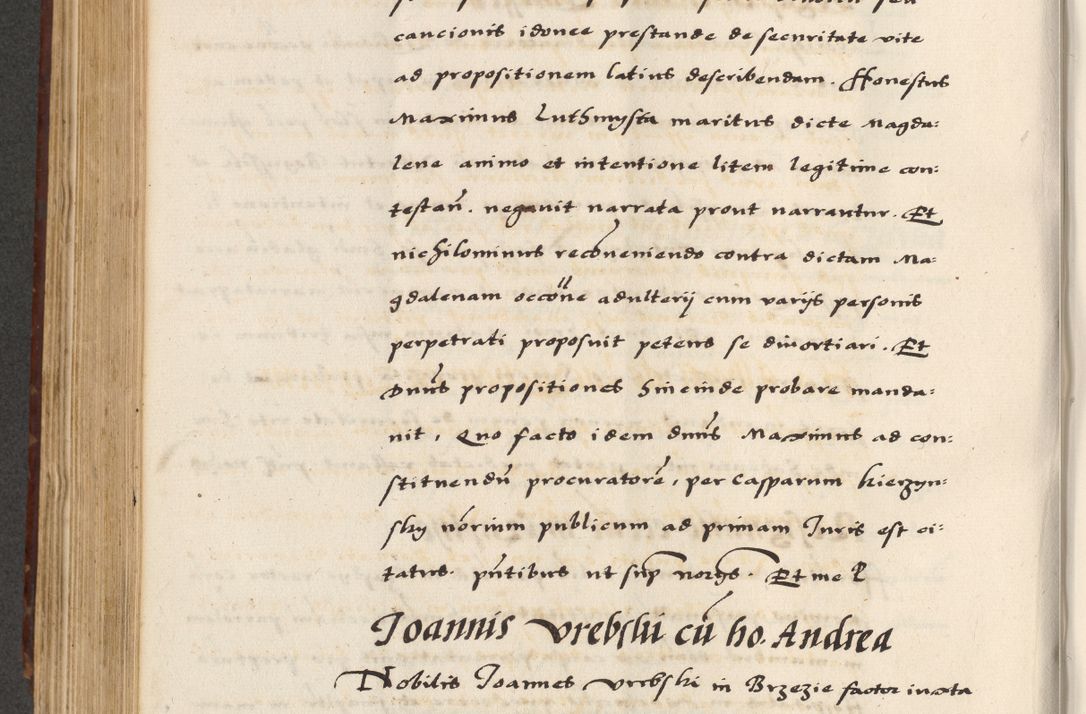 caucionis idonee prestande de securitate vite
ad propositionem latius describendam. Honestus
Maximus Luthmysta maritus dicte Magda:
lene animo et intentione litem legitime con:
testan̄. negauit narrata prout narrantur. Et
nichilominus recōneniendo contra dictam Ma:
gdalenam occōne adulterij cum varijs personis
perpetrati proposuit petens se diuortiari. Et
Dnūs propositiones hincinde probare manda:
uit, Quo facto idem dnūs Maximus ad con:
stituendū procuratorē, per Casparum Kierzyn:
sky nōrium publicum ad primam Iuris est ci:
tatus. pn̄tibus ut sup̄ norijs. Et me
Joannis Vrebski cū ho. Andrea
Nobilis Joannes Vrebski in Brzezie factor iuxta